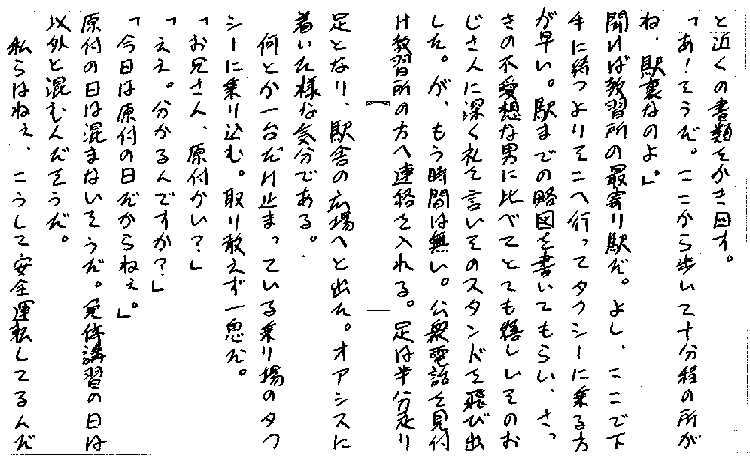 と近くの書類をかき回す。
「あ！そうだ。ここから歩いて十分程の所が
ね、駅裏なのよ」。
聞けば教習所の最寄り駅だ。よし、ここで下
手に待つよりそこへ行ってタクシーに乗る方
が早い。駅までの略図を書いてもらい、さっ
きの不愛想な男に比べてとても優しいそのお
じさんに深く礼を言いそのスタンドを飛び出
した。が、もう時間は無い。公衆電話を見付
け教習所の方へ連絡を入れる。足は半分走り
足となり、駅舎の広場へと出た。オアシスに
着いた様な気分である。
何とか一台だけ止まっている乗り場のタク
シーに乗り込む。取り敢えず一息だ。
「お兄さん、原付かい？」
「ええ。分かるんですか？」
「今日は原付の日だからねぇ。」
原付の日は混まないそうだ。免停講習の日は
以外と混むんだそうだ。
私らはねぇ、こうして安全運転してるんだ